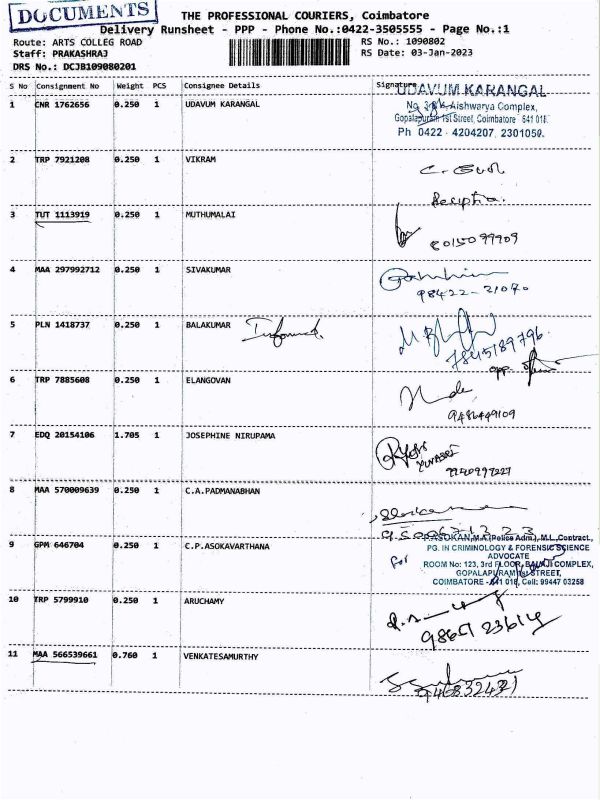 DOCUMENTS
THE PROFESSIONAL COURIERS, Coimbatore
Delivery Runsheet - PPP - Phone No.:0422-3505555 - Page No.:1
Route: ARTS COLLEG ROAD
RS No.: 1090802
Staff: PRAKASHRAJ
RS Date: 03-Jan-2023
DRS No.: DCJB109080201
S No Consignment No Weight PCS Consignee Details Signature
1 CNR 1762656 0.250 1 UDAVUM KARANGAL
UDAVUM KARANGAL
Aishwarya Complex,
Gopalapuram 1st Street, Coimbatore 641 018.
Ph 0422 - 4204207, 2301050.
2 TRP 7921208 0.250 1 VIKRAM
3 TUT 1113919 0.250 1 MUTHUMALAI
8015099909
4 MAA 297992712 0.250 1 SIVAKUMAR
98422-21070
5 PLN 1418737 0.250 1 BALAKUMAR Informed.
7845189796
opp.
6 TRP 7885608 0.250 1 ELANGOVAN
9486449109
7 EDQ 20154106 1.705 1 JOSEPHINE NIRUPAMA
8 MAA 570009639 0.250 1 C.A.PADMANABHAN
9 GPM 646704 0.250 1 C.P.ASOKAVARTHANA
for
P.ASOKAN,M.A(Police Adm.),M.L.,Contract.,
PG. IN CRIMINOLOGY & FORENSIC SCIENCE
ADVOCATE
ROOM No: 123, 3rd FLOOR, BALAJI COMPLEX,
GOPALAPURAM 1st STREET,
COIMBATORE - 641 018, Cell: 99447 03258
10 TRP 5799910 0.250 1 ARUCHAMY
11 MAA 566539661 0.760 1 VENKATESAMURTHY